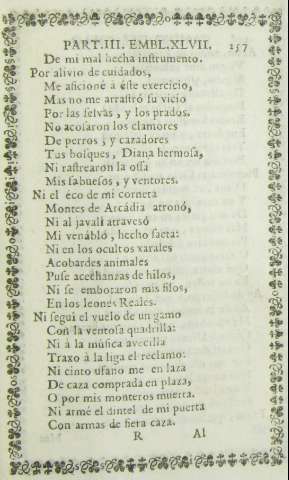 PART.III. EMBL.XLVII. 257
De mi mal hecha inſtrumento.
Por alivio de cuidados,
Me aficionè à eſte exercicio,
Mas no me arraſtrò ſu vicio
Por las ſelvas, y los prados.
No acoſaron los clamores
De perros, y cazadores
Tus boſques, Diana hermoſa,
Ni raſtrearon la oſſa
Mis ſabueſos, y ventores.
Ni el éco de mi corneta
Montes de Arcádia atronò,
Ni al javali atravesò
Mi venáblo, hecho ſaeta:
Ni en los ocultos xarales
Acobardes animales
Puſe acechanzas de hilos,
Ni ſe embotaron mis filos,
En los leones Reales.
Ni segui el vuelo de un gamo
Con la ventoſa quadrilla:
Ni à la muſica avecilla
Traxo à la liga el reclamo:
Ni cinto ufano me en laza
De caza comprada en plaza,
O por mis monteros muerta.
Ni armè el dintel de mi puerta
Con armas de fiera caza.
R Al